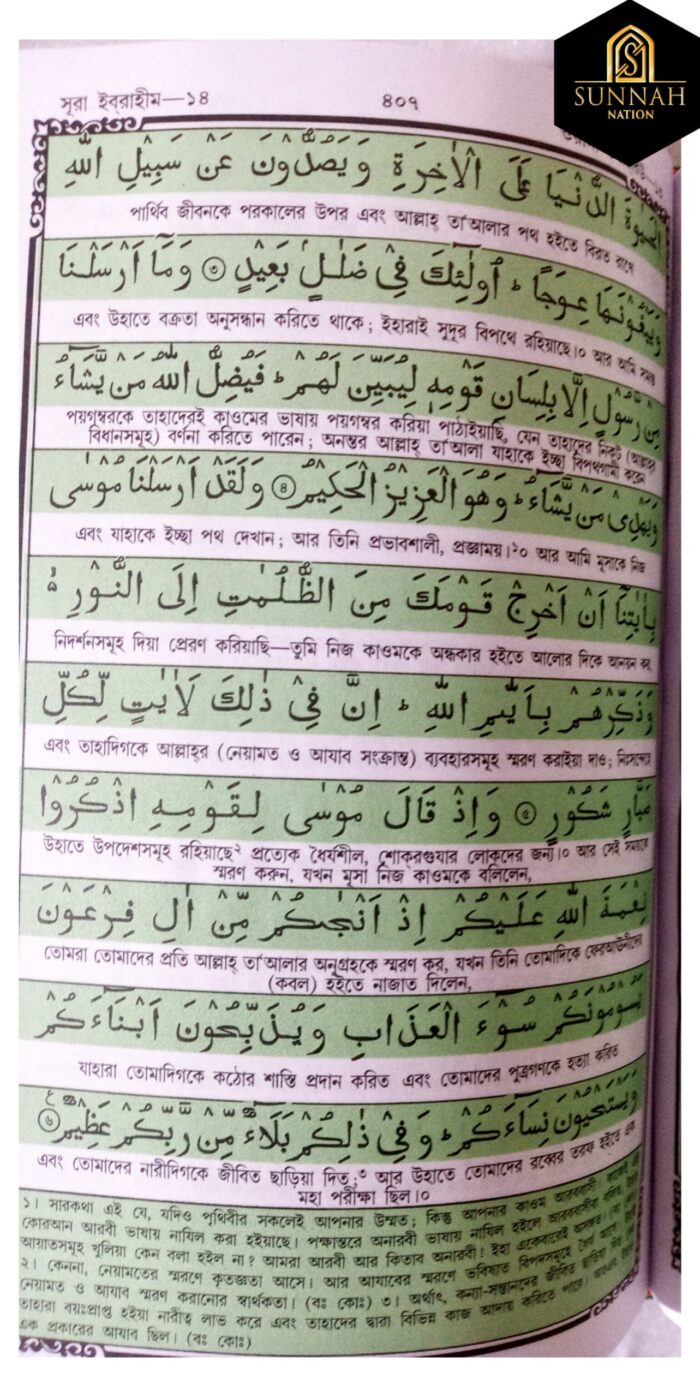 SUNNAH
NATION
সূরা ইবরাহীম—১৪
৪০৭
الْحَيٰوةَ الدُّنْيَا عَلَى الْاٰخِرَةِ وَيَصُدُّوْنَ عَنْ سَبِيْلِ اللّٰهِ
পার্থিব জীবনকে পরকালের উপর এবং আল্লাহ্ তা'আলার পথ হইতে বিরত রাখে
وَيَبْغُوْنَهَا عِوَجًا ؕ اُولٰٓئِكَ فِيْ ضَلٰلٍۭ بَعِيْدٍ ۝٣ وَمَاۤ اَرْسَلْنَا
এবং উহাতে বক্রতা অনুসন্ধান করিতে থাকে; ইহারাই সুদূর বিপথে রহিয়াছে।০ আর আমি সমস্ত
مِنْ رَّسُوْلٍ اِلَّا بِلِسَانِ قَوْمِهٖ لِيُبَيِّنَ لَهُمْ ؕ فَيُضِلُّ اللّٰهُ مَنْ يَّشَآءُ
পয়গম্বরকে তাহাদেরই কাওমের ভাষায় পয়গম্বর করিয়া পাঠাইয়াছি, যেন তাহাদের নিকট (আল্লাহর
বিধানসমূহ) বর্ণনা করিতে পারেন; অনন্তর আল্লাহ্ তা'আলা যাহাকে ইচ্ছা বিপথগামী করেন
وَيَهْدِيْ مَنْ يَّشَآءُ ؕ وَهُوَ الْعَزِيْزُ الْحَكِيْمُ ۝٤ وَلَقَدْ اَرْسَلْنَا مُوْسٰى
এবং যাহাকে ইচ্ছা পথ দেখান; আর তিনি প্রভাবশালী, প্রজ্ঞাময়।১০ আর আমি মূসাকে নিজ
بِاٰيٰتِنَاۤ اَنْ اَخْرِجْ قَوْمَكَ مِنَ الظُّلُمٰتِ اِلَى النُّوْرِ ۙ۬
নিদর্শনসমূহ দিয়া প্রেরণ করিয়াছি—তুমি নিজ কাওমকে অন্ধকার হইতে আলোর দিকে আনয়ন কর,
وَذَكِّرْهُمْ بِاَيّٰىمِ اللّٰهِ ؕ اِنَّ فِيْ ذٰلِكَ لَاٰيٰتٍ لِّكُلِّ
এবং তাহাদিগকে আল্লাহ্‌র (নেয়ামত ও আযাব সংক্রান্ত) ব্যবহারসমূহ স্মরণ করাইয়া দাও; নিঃসন্দেহে
صَبَّارٍ شَكُوْرٍ ۝٥ وَاِذْ قَالَ مُوْسٰى لِقَوْمِهِ اذْكُرُوْا
উহাতে উপদেশসমূহ রহিয়াছে২ প্রত্যেক ধৈর্যশীল, শোকরগুযার লোকদের জন্য।০ আর সেই সময়কে
স্মরণ করুন, যখন মূসা নিজ কাওমকে বলিলেন,
نِعْمَةَ اللّٰهِ عَلَيْكُمْ اِذْ اَنْجٰىكُمْ مِّنْ اٰلِ فِرْعَوْنَ
তোমরা তোমাদের প্রতি আল্লাহ্ তা'আলার অনুগ্রহকে স্মরণ কর, যখন তিনি তোমাদিকে ফেরআউনীদের
(কবল) হইতে নাজাত দিলেন,
يَسُوْمُوْنَكُمْ سُوْٓءَ الْعَذَابِ وَيُذَبِّحُوْنَ اَبْنَآءَكُمْ
যাহারা তোমাদিগকে কঠোর শাস্তি প্রদান করিত এবং তোমাদের পুত্রগণকে হত্যা করিত
وَيَسْتَحْيُوْنَ نِسَآءَكُمْ ؕ وَفِيْ ذٰلِكُمْ بَلَآءٌ مِّنْ رَّبِّكُمْ عَظِيْمٌ ۝٦ ع
এবং তোমাদের নারীদিগকে জীবিত ছাড়িয়া দিত;৩ আর উহাতে তোমাদের রব্বের তরফ হইতে এক
মহা পরীক্ষা ছিল।০
১। সারকথা এই যে, যদিও পৃথিবীর সকলেই আপনার উম্মত; কিন্তু আপনার কাওম আরববাসী।
কোরআন আরবী ভাষায় নাযিল করা হইয়াছে। পক্ষান্তরে অনারবী ভাষায় নাযিল হইলে আরববাসীরা বলিত,
আয়াতসমূহ খুলিয়া কেন বলা হইল না? আমরা আরবী আর কিতাব অনারবী! ইহা একেবারেই অসঙ্গত।
২। কেননা, নেয়ামতের স্মরণে কৃতজ্ঞতা আসে। আর আযাবের স্মরণে ভবিষ্যত বিপদসমূহে ধৈর্য আসে।
নেয়ামত ও আযাব স্মরণ করানোর স্বার্থকতা। (বঃ কোঃ) ৩। অর্থাৎ, কন্যা-সন্তানদের জীবিত ছাড়িয়া দিত যেন
তাহারা বয়ঃপ্রাপ্ত হইয়া নারীত্ব লাভ করে এবং তাহাদের দ্বারা বিভিন্ন কাজ আদায় করিতে পারে।
এক প্রকারের আযাব ছিল। (বঃ কোঃ)